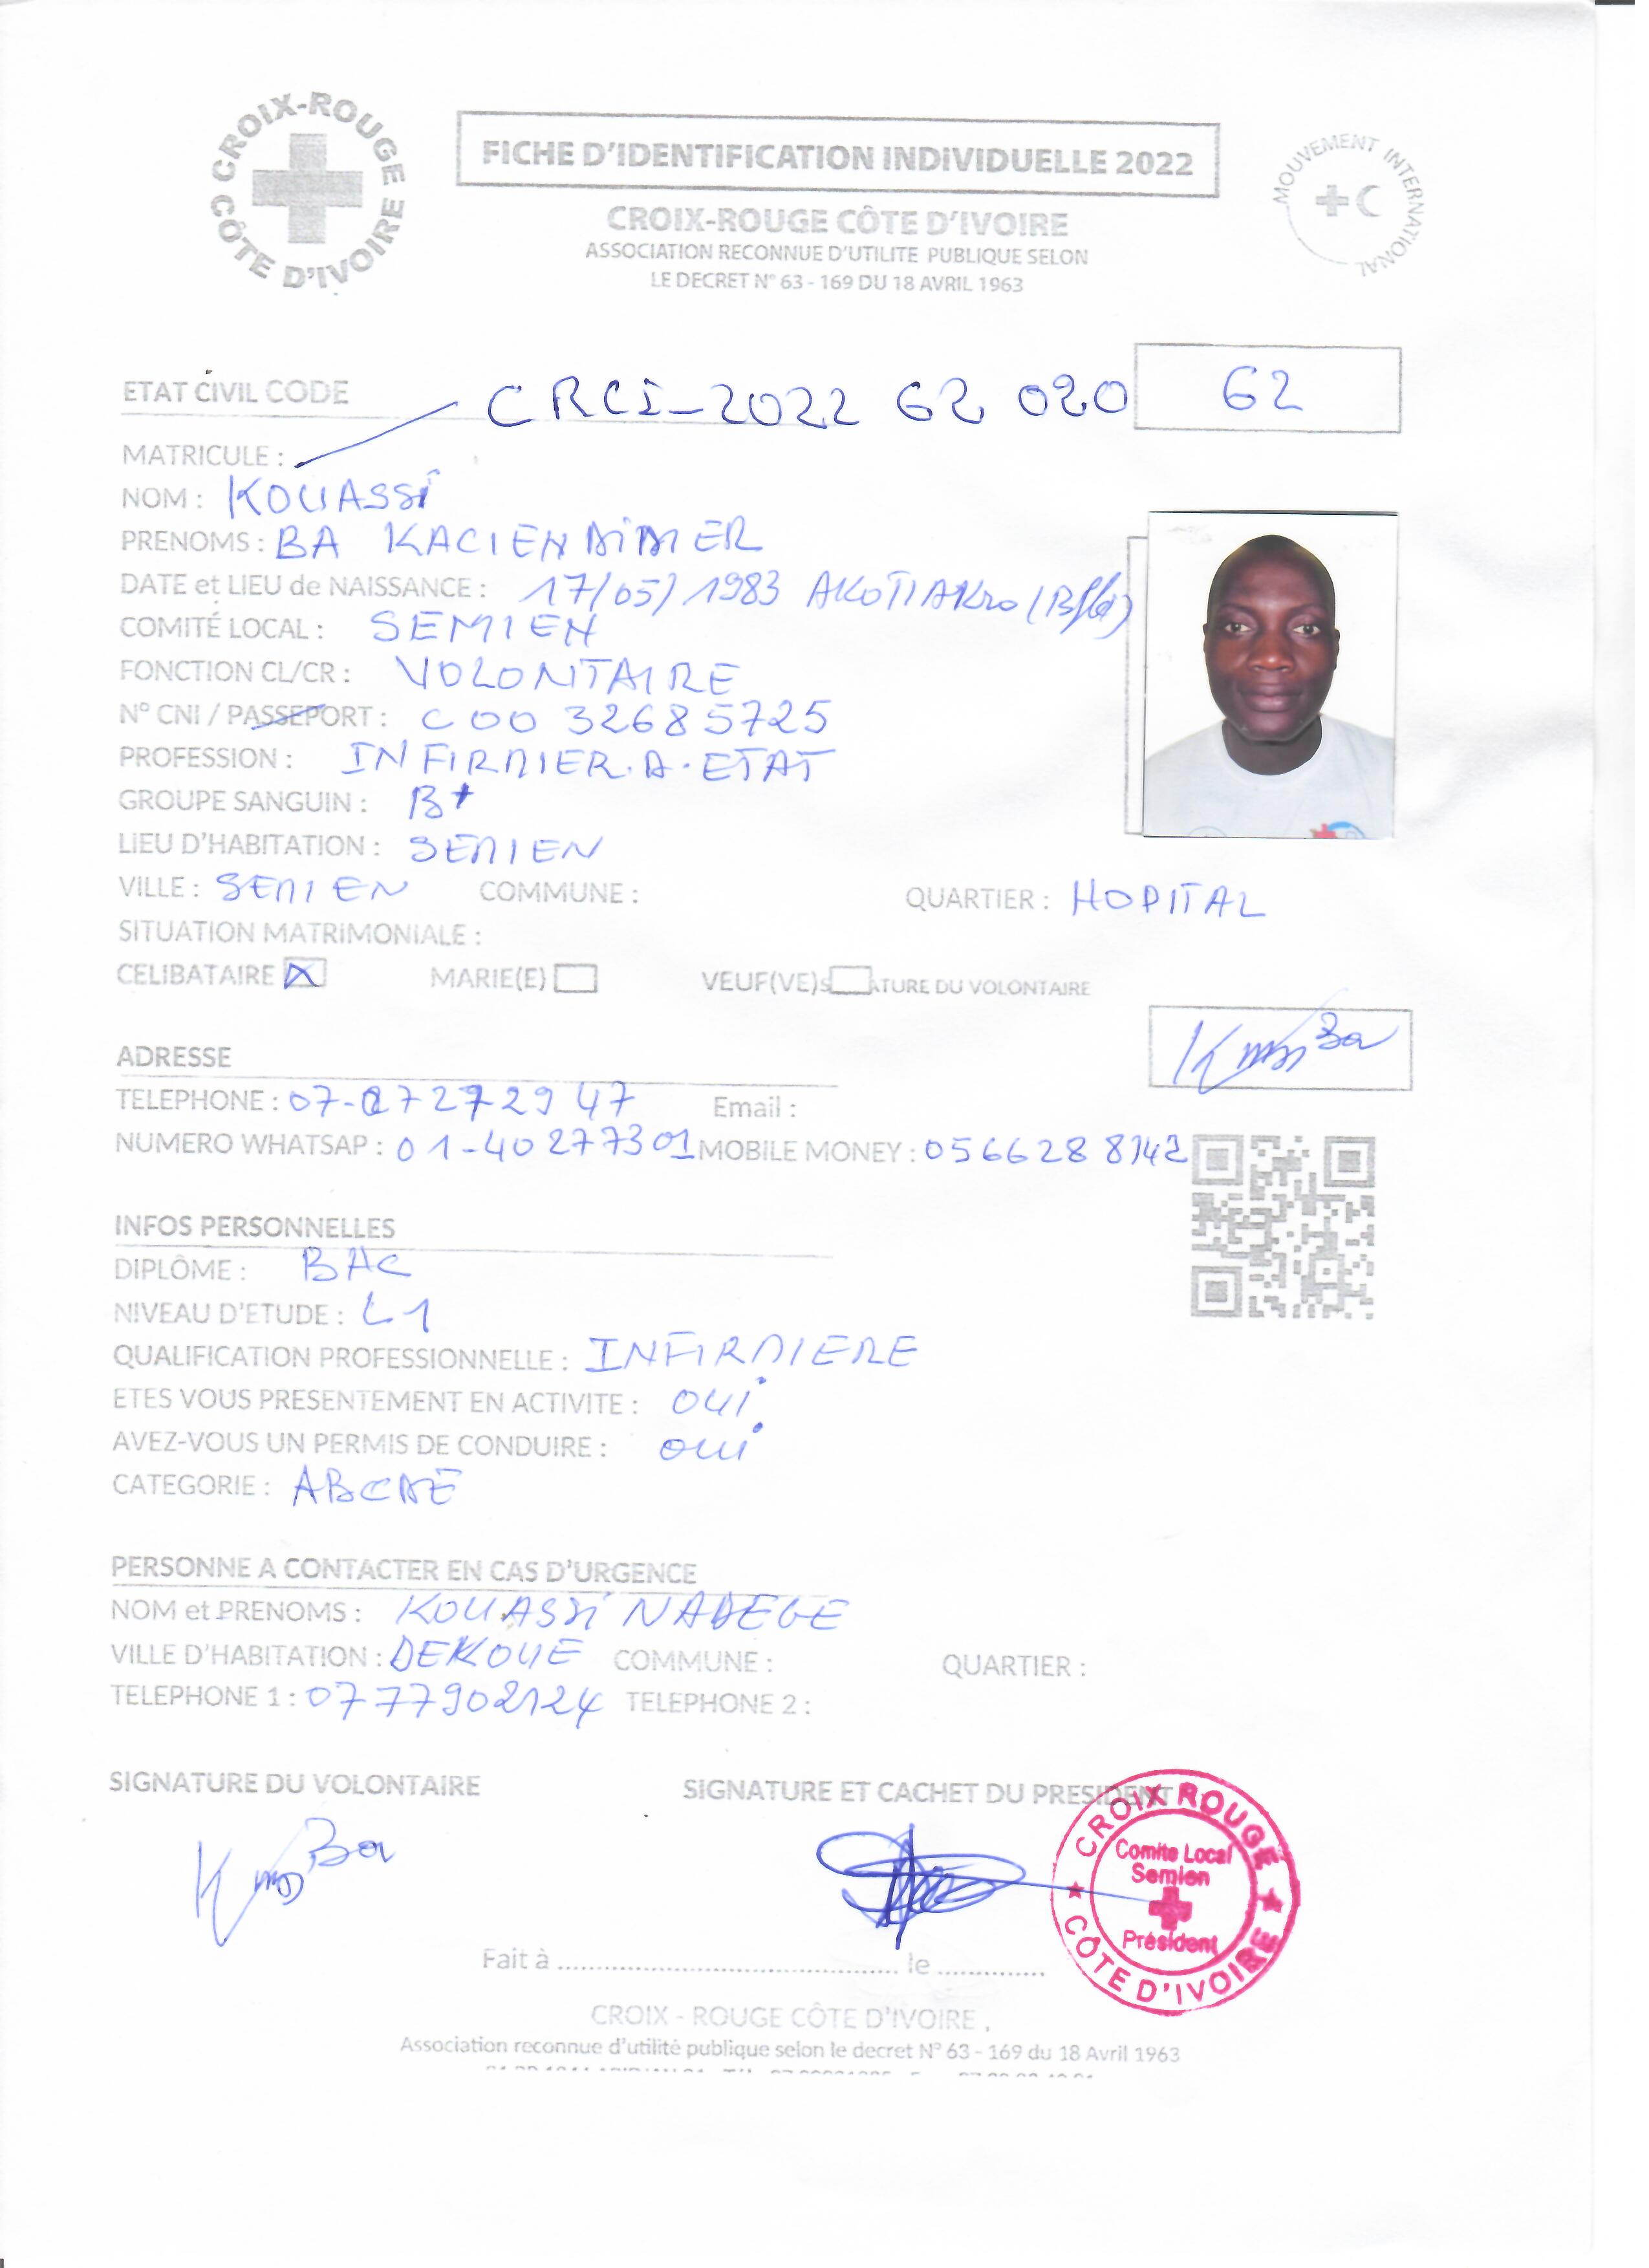 CROIX-ROUGE CÔTE D'IVOIRE
FICHE D'IDENTIFICATION INDIVIDUELLE 2022
CROIX-ROUGE CÔTE D'IVOIRE
ASSOCIATION RECONNUE D'UTILITE PUBLIQUE SELON
LE DECRET N° 63 - 169 DU 18 AVRIL 1963
MOUVEMENT INTERNATIONAL
ETAT CIVIL CODE CRCI-2022 62 020 62
MATRICULE :
NOM : KOUASSI
PRENOMS : BA KACIEN AIMER
DATE et LIEU de NAISSANCE : 17/05/1983 AKOTIAKro
COMITÉ LOCAL : SEMIEN
FONCTION CL/CR : VOLONTAIRE
N° CNI / PASSEPORT : C00 32685725
PROFESSION : INFIRMIER.D.ETAT
GROUPE SANGUIN : B+
LIEU D'HABITATION : SEMIEN
VILLE : SEMIEN COMMUNE : QUARTIER : HOPITAL
SITUATION MATRIMONIALE :
CELIBATAIRE X MARIE(E) VEUF(VE) ATURE DU VOLONTAIRE
ADRESSE
TELEPHONE : 07-07272947 Email :
NUMERO WHATSAP : 01-40277301 MOBILE MONEY : 0566288142
INFOS PERSONNELLES
DIPLÔME : BAC
NIVEAU D'ETUDE : L1
QUALIFICATION PROFESSIONNELLE : INFIRMIERE
ETES VOUS PRESENTEMENT EN ACTIVITE : OUI
AVEZ-VOUS UN PERMIS DE CONDUIRE : OUI
CATEGORIE : ABCDE
PERSONNE A CONTACTER EN CAS D'URGENCE
NOM et PRENOMS : KOUASSI NADEGE
VILLE D'HABITATION : DEKOUE COMMUNE : QUARTIER :
TELEPHONE 1 : 0777902124 TELEPHONE 2 :
SIGNATURE DU VOLONTAIRE SIGNATURE ET CACHET DU PRESIDENT
CROIX ROUGE
Comite Local
Semien
Président
CÔTE D'IVOIRE
Fait à .......................................... le ..............
CROIX - ROUGE CÔTE D'IVOIRE .
Association reconnue d'utilité publique selon le decret N° 63 - 169 du 18 Avril 1963